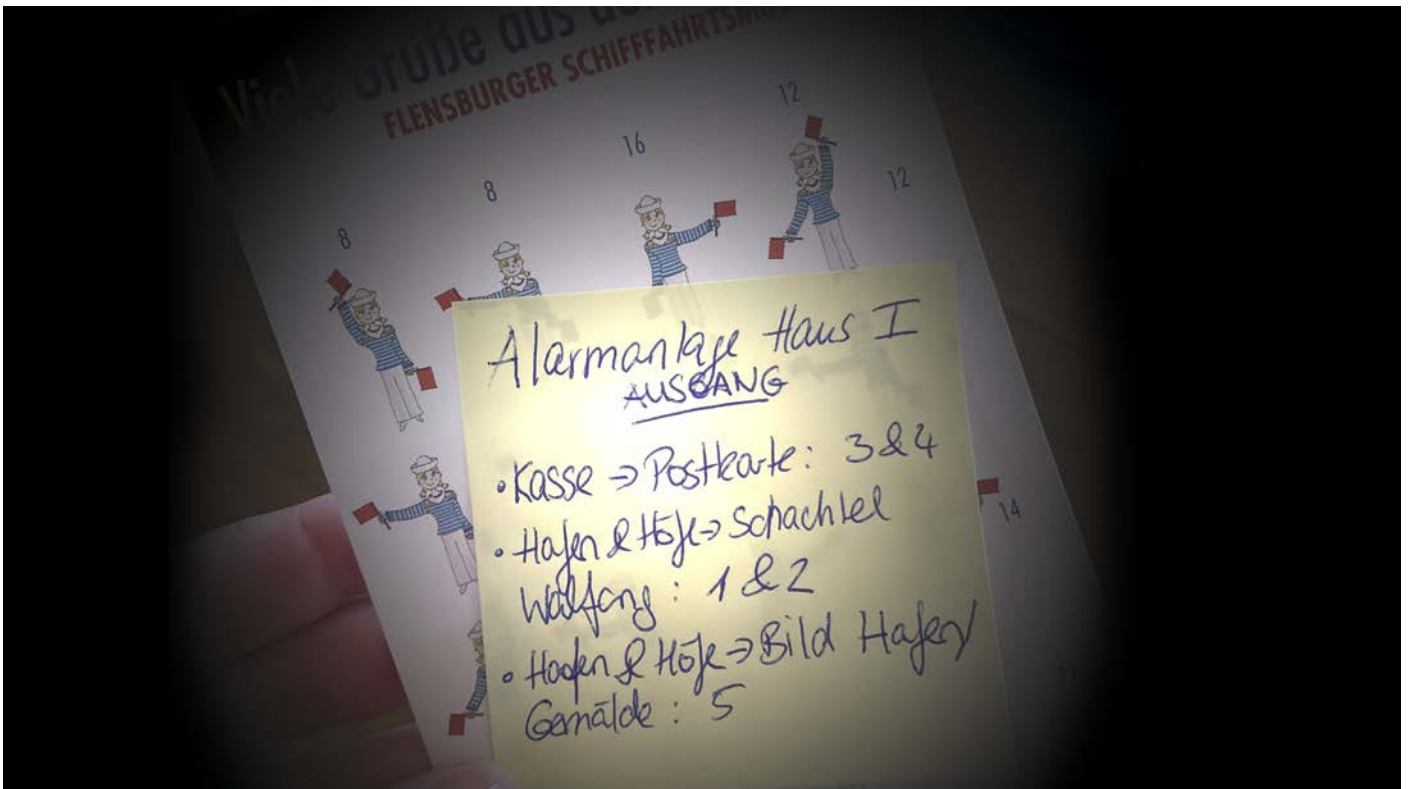 Viele Grüße aus de
FLENSBURGER SCHIFFFAHRTSM
8
8
16
12
12
14
Alarmanlage Haus I
AUSGANG
• Kasse → Postkarte: 3 & 4
• Hafen & Höfe → Schachtel
Walfang: 1 & 2
• Hafen & Höfe → Bild Hafen/
Gemälde: 5